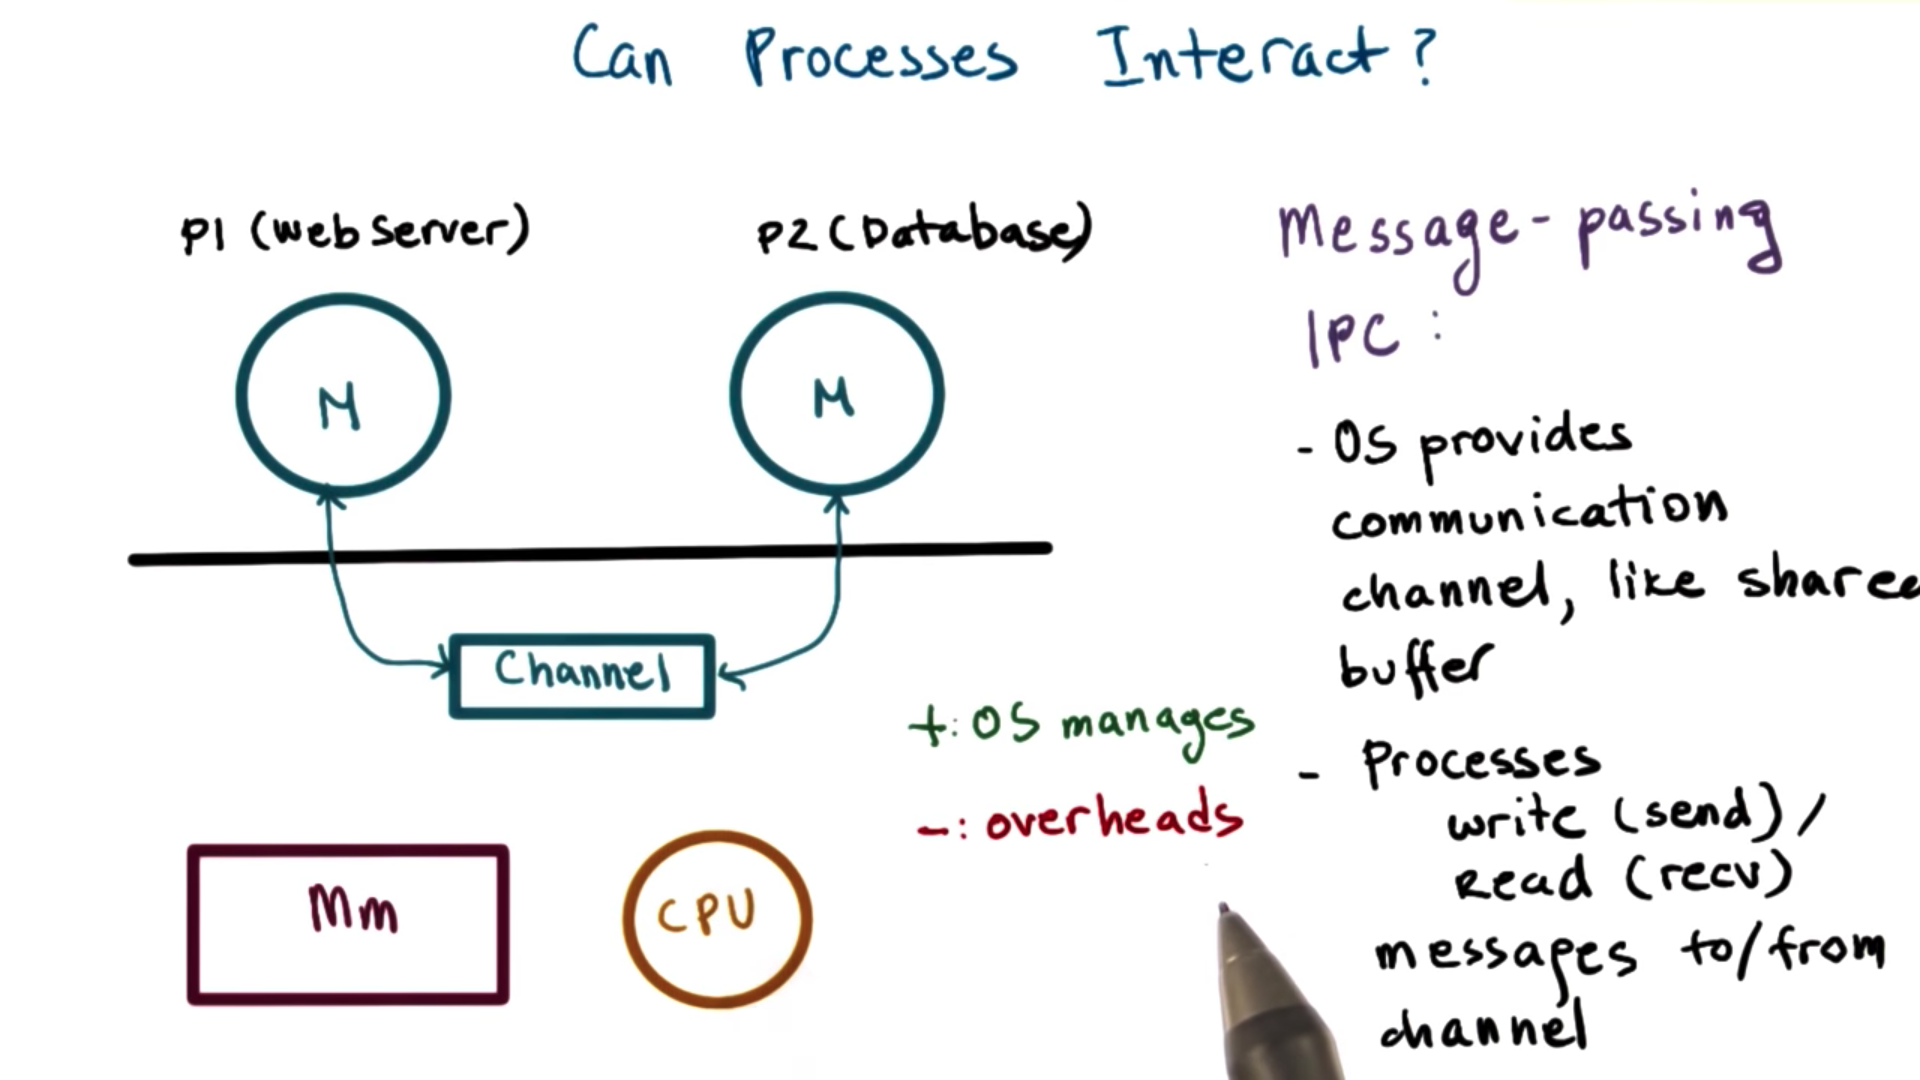 Can Processes Interact?
P1 (Web Server)
P2 (Database)
M
M
Channel
Mm
CPU
+: OS manages
-: overheads
Message-passing
IPC:
- OS provides
communication
channel, like share
buffer
- Processes
write (send) /
Read (recv)
messages to/from
channel